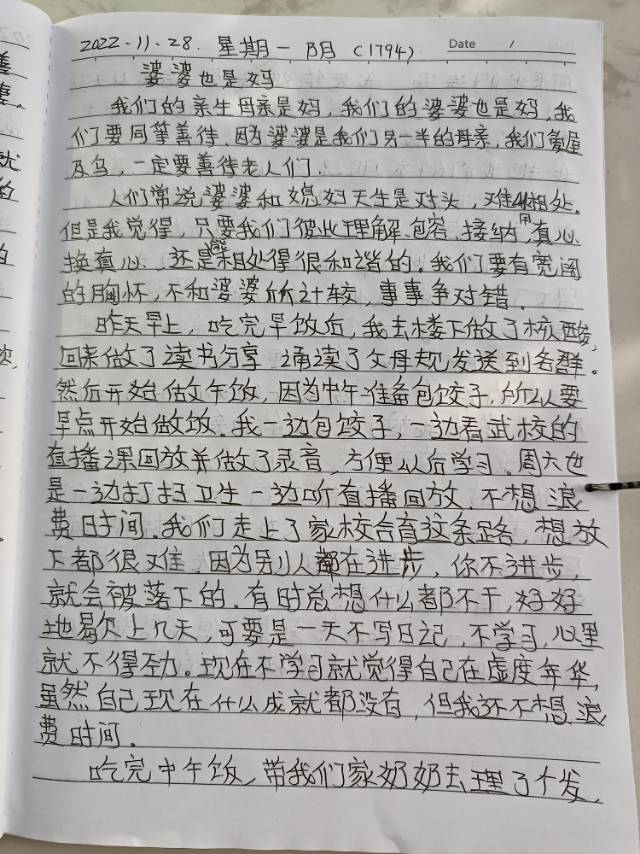 2022.11.28. 星期一 阴 (1794) Date /
婆婆也是妈
我们的亲生母亲是妈，我们的婆婆也是妈，我
们要同等善待。因为婆婆是我们另一半的母亲，我们爱屋
及乌，一定要善待老人们。
人们常说婆婆和媳妇天生是对头，难相处。
但是我觉得，只要我们彼此理解、包容、接纳，用真心
换真心，还是能相处得很和谐的。我们要有宽阔
的胸怀，不和婆婆斤斤计较，事事争对错。
昨天早上，吃完早饭后，我去楼下做了核酸，
回来做了读书分享，诵读了父母规发送到各群。
然后开始做午饭，因为中午准备包饺子，所以要
早点开始做饭。我一边包饺子，一边看武校的
直播课回放并做了录音，方便以后学习。周六也
是一边打扫卫生一边听直播回放，不想浪
费时间。我们走上了家校合育这条路，想放
下都很难，因为别人都在进步，你不进步，
就会被落下的。有时总想什么都不干，好好
地歇上几天，可要是一天不写日记，不学习，心里
就不得劲。现在不学习就觉得自己在虚度年华，
虽然自己现在什么成就都没有，但我还不想浪
费时间。
吃完中午饭，带我们家奶奶去理了个发，